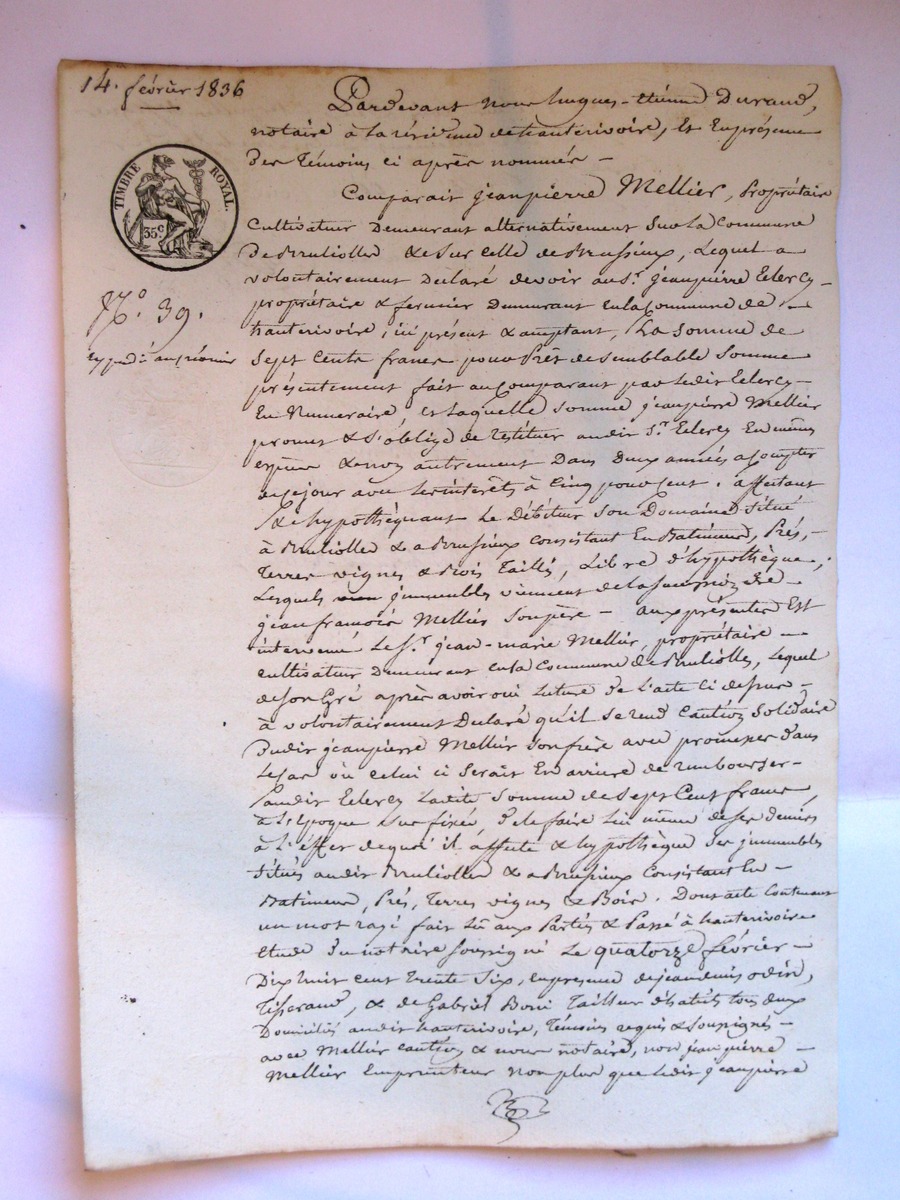 14. février 1836
Pardevant nous hugues-étienne Durand,
notaire à la résidence de hauterivoire, Et En présence
Des Témoins ci après nommés —
TIMBRE ROYAL.
35c
Comparait jeanpierre Mellier, Propriétaire
Cultivateur Demeurant alternativement Sur La Commune
De Brullioles & de Sur celle de Brussieux, Lequel a
volontairement Déclaré devoir au Sr. jeanpierre
propriétaire & fermier Demeurant en la Commune de
hauterivoire, ici présent & acceptant, La Somme de
No. 39.
Sept Cents francs pour Prêt de Semblable Somme
présentement fait au Comparant par Ledit
En Numéraire, et Laquelle Somme jeanpierre Mellier
promet & S'oblige de restituer audit Sr. En mêmes
espèces & non autrement Dans Deux années à Compter
de ce jour avec Les intérêts à Cinq pour cent. affectant
& hypothéquant Le Débiteur Son Domaine Situé
à Brullioles & à Brussieux Consistant En Batiments, Prés,
Terres vignes & Bois Taillis, Libre d'hypothèque,
Lesquels immeubles viennent de la Succession de
jean françois Mellier Son père — aux présentes Est
intervenu Le Sr. jean-marie Mellier, propriétaire
cultivateur Demeurant en la Commune de Brullioles, Lequel
de Son Gré après avoir oui Lecture De L'acte Ci dessus
à volontairement Déclaré qu'il Se rend Caution Solidaire
Dudit jeanpierre Mellier Son frère avec promesse Dans
Le Cas où Celui ci Serait En arrière de rembourser
audit Ladite Somme de Sept Cent francs,
à L'Epoque Sus fixée, De le faire Lui même de Ses Deniers
à L'effet de quoi il affecte & hypothèque Ses immeubles
Situés audit Brullioles & à Brussieux Consistant En
Batiments, Prés, Terres vignes & Bois. Dont acte Contenant
un mot rayé fait Lû aux Parties & Passé à hauterivoire
étude Du notaire Soussigné Le quatorze février
Dix huit cent trente Six, en présence de jean denis odin,
Tisserand, & de Gabriel Tailleur d'habits tous deux
Domiciliés audit hauterivoire, Témoins requis & Soussignés
avec Mellier Caution & nous notaire, non jean pierre
Mellier Emprunteur non plus que Ledit jeanpierre